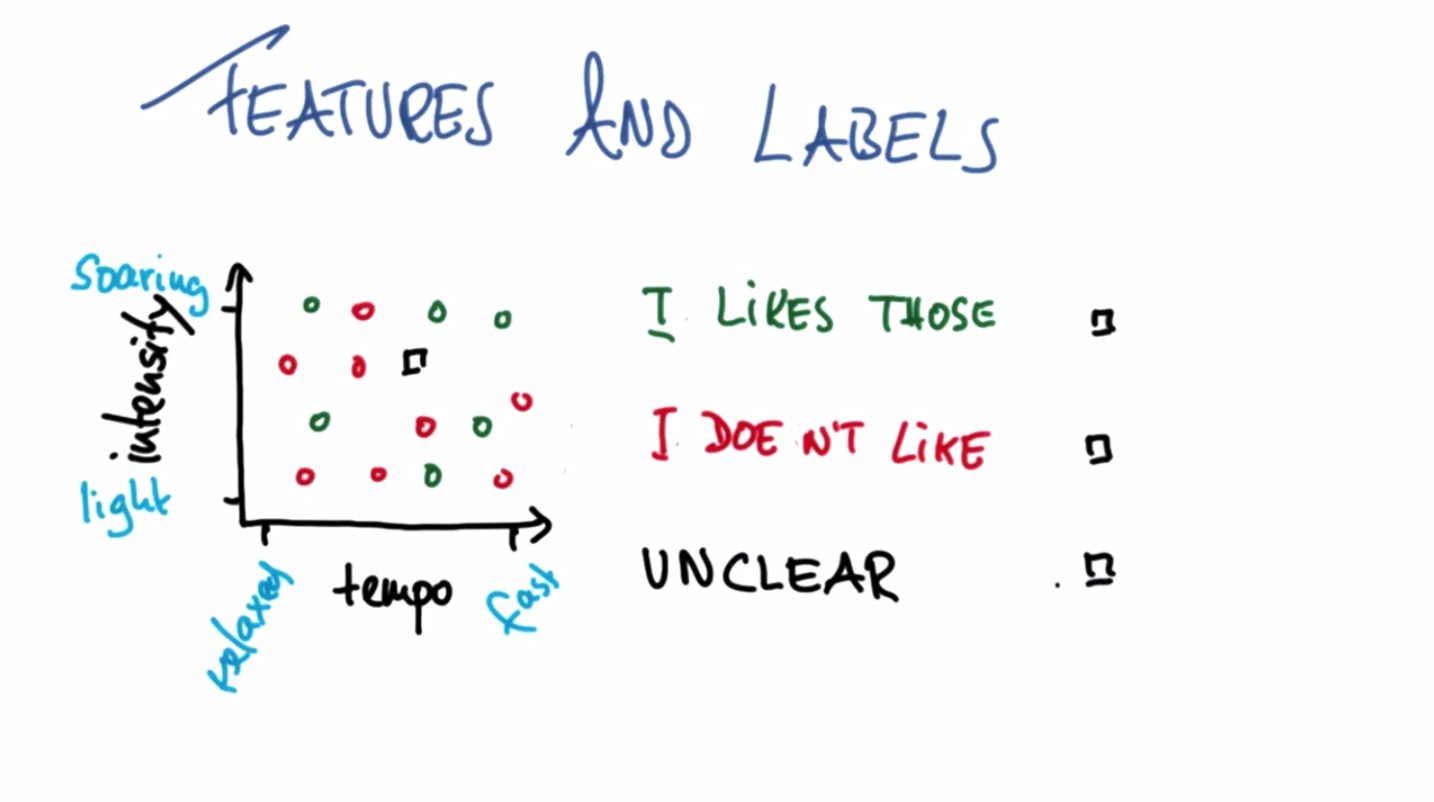 FEATURES AND LABELS
Soaring
intensity
light
relaxed
tempo
fast
I LiKES THOSE
I DOEN'T LiKE
UNCLEAR